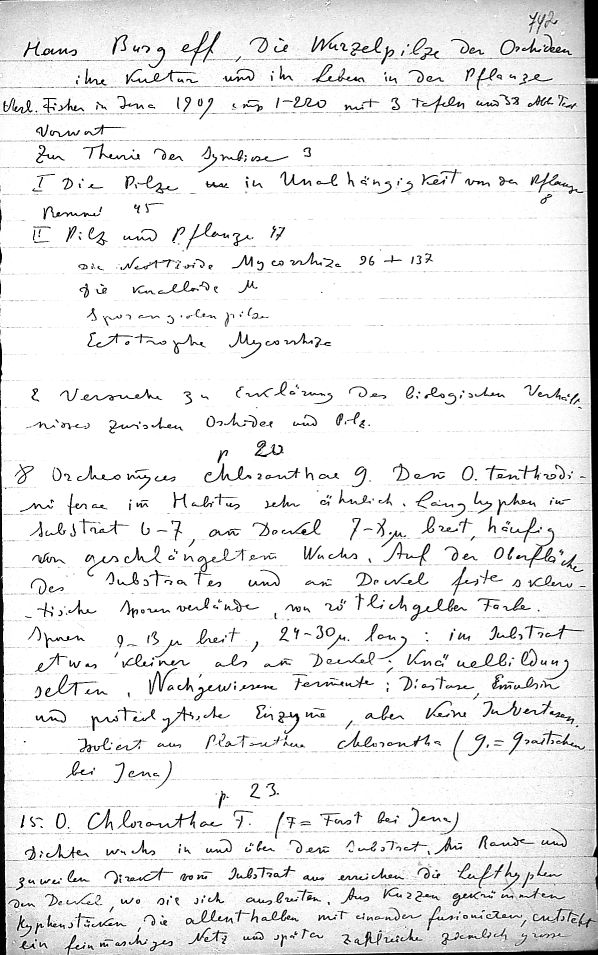 742
Hans Burgeff, Die Wurzelpilze der Orchideen
ihre Kultur und ihr Leben in der Pflanze
Verl. Fisher in Jena 1909 1-220 mit 3 Tafeln und 38 Abb Text
Vorwort
Zur Theorie der Symbiose 3
I Die Pilze in Unabhängigkeit von der Pflanze
8
Resumé 45
II Pilz und Pflanze 47
Die Neottioide Mycorrhiza 96 + 137
die Knalloide M
Sporangiolenpilze
Ectotrophe Mycorrhiza
2 Versuche zu Erklärung des biologischen Verhält-
nisses zwischen Orchidee und Pilz.
p 20
8 Orcheomyces chloranthae g. Dem O. tenthredi-
niferae im Habitus sehr ähnlich. Langhyphen im
Substrat 6-7, am Deckel 7-8 µ breit, häufig
von geschlängeltem Wuchs. Auf der Oberfläche
des Substrates und am Deckel feste sklero-
-tische Sporenverbände, von rötlichgelber Farbe.
Sporen 9-13 µ breit, 24-30 µ. lang: im Substrat
etwas kleiner als am Deckel; Knäuelbildung
selten. Nachgewiesene Fermente: Diastase, Emulsin
und proteolytische Enzyme, aber keine Invertasen.
Isoliert aus Platanthera chlorantha (g. = Graitschen
bei Jena)
p. 23.
15. O. Chloranthae F. (F = Forst bei Jena)
Dichter wuchs in und über dem Substrat. Am Rande und
zuweilen direkt vom Substrat aus erreichen die Lufthyphen
den Deckel, wo sie sich ausbreiten. Aus kurzen gekrümmten
Hyphenstücken, die allenthalben mit einander fusionieren, entsteht
ein feinmaschiges Netz und später zahlreiche ziemlich grosse